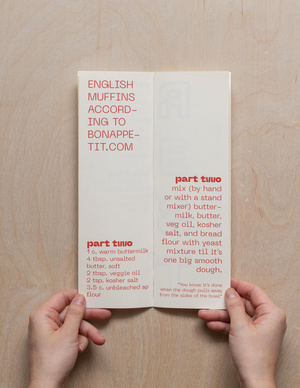 ENGLISH
MUFFINS
ACCORD-
ING TO
BONAPPE-
TIT.COM
part two
1 c. warm buttermilk
4 tbsp. unsalted
butter, soft
2 tbsp. veggie oil
2 tsp. kosher salt
3.5 c. unbleached ap
flour
part two
mix (by hand
or with a stand
mixer) butter-
milk, butter,
veg oil, kosher
salt, and bread
flour with yeast
mixture til it's
one big smooth
dough.
"You know it's done
when the dough pulls away
from the sides of the bowl"